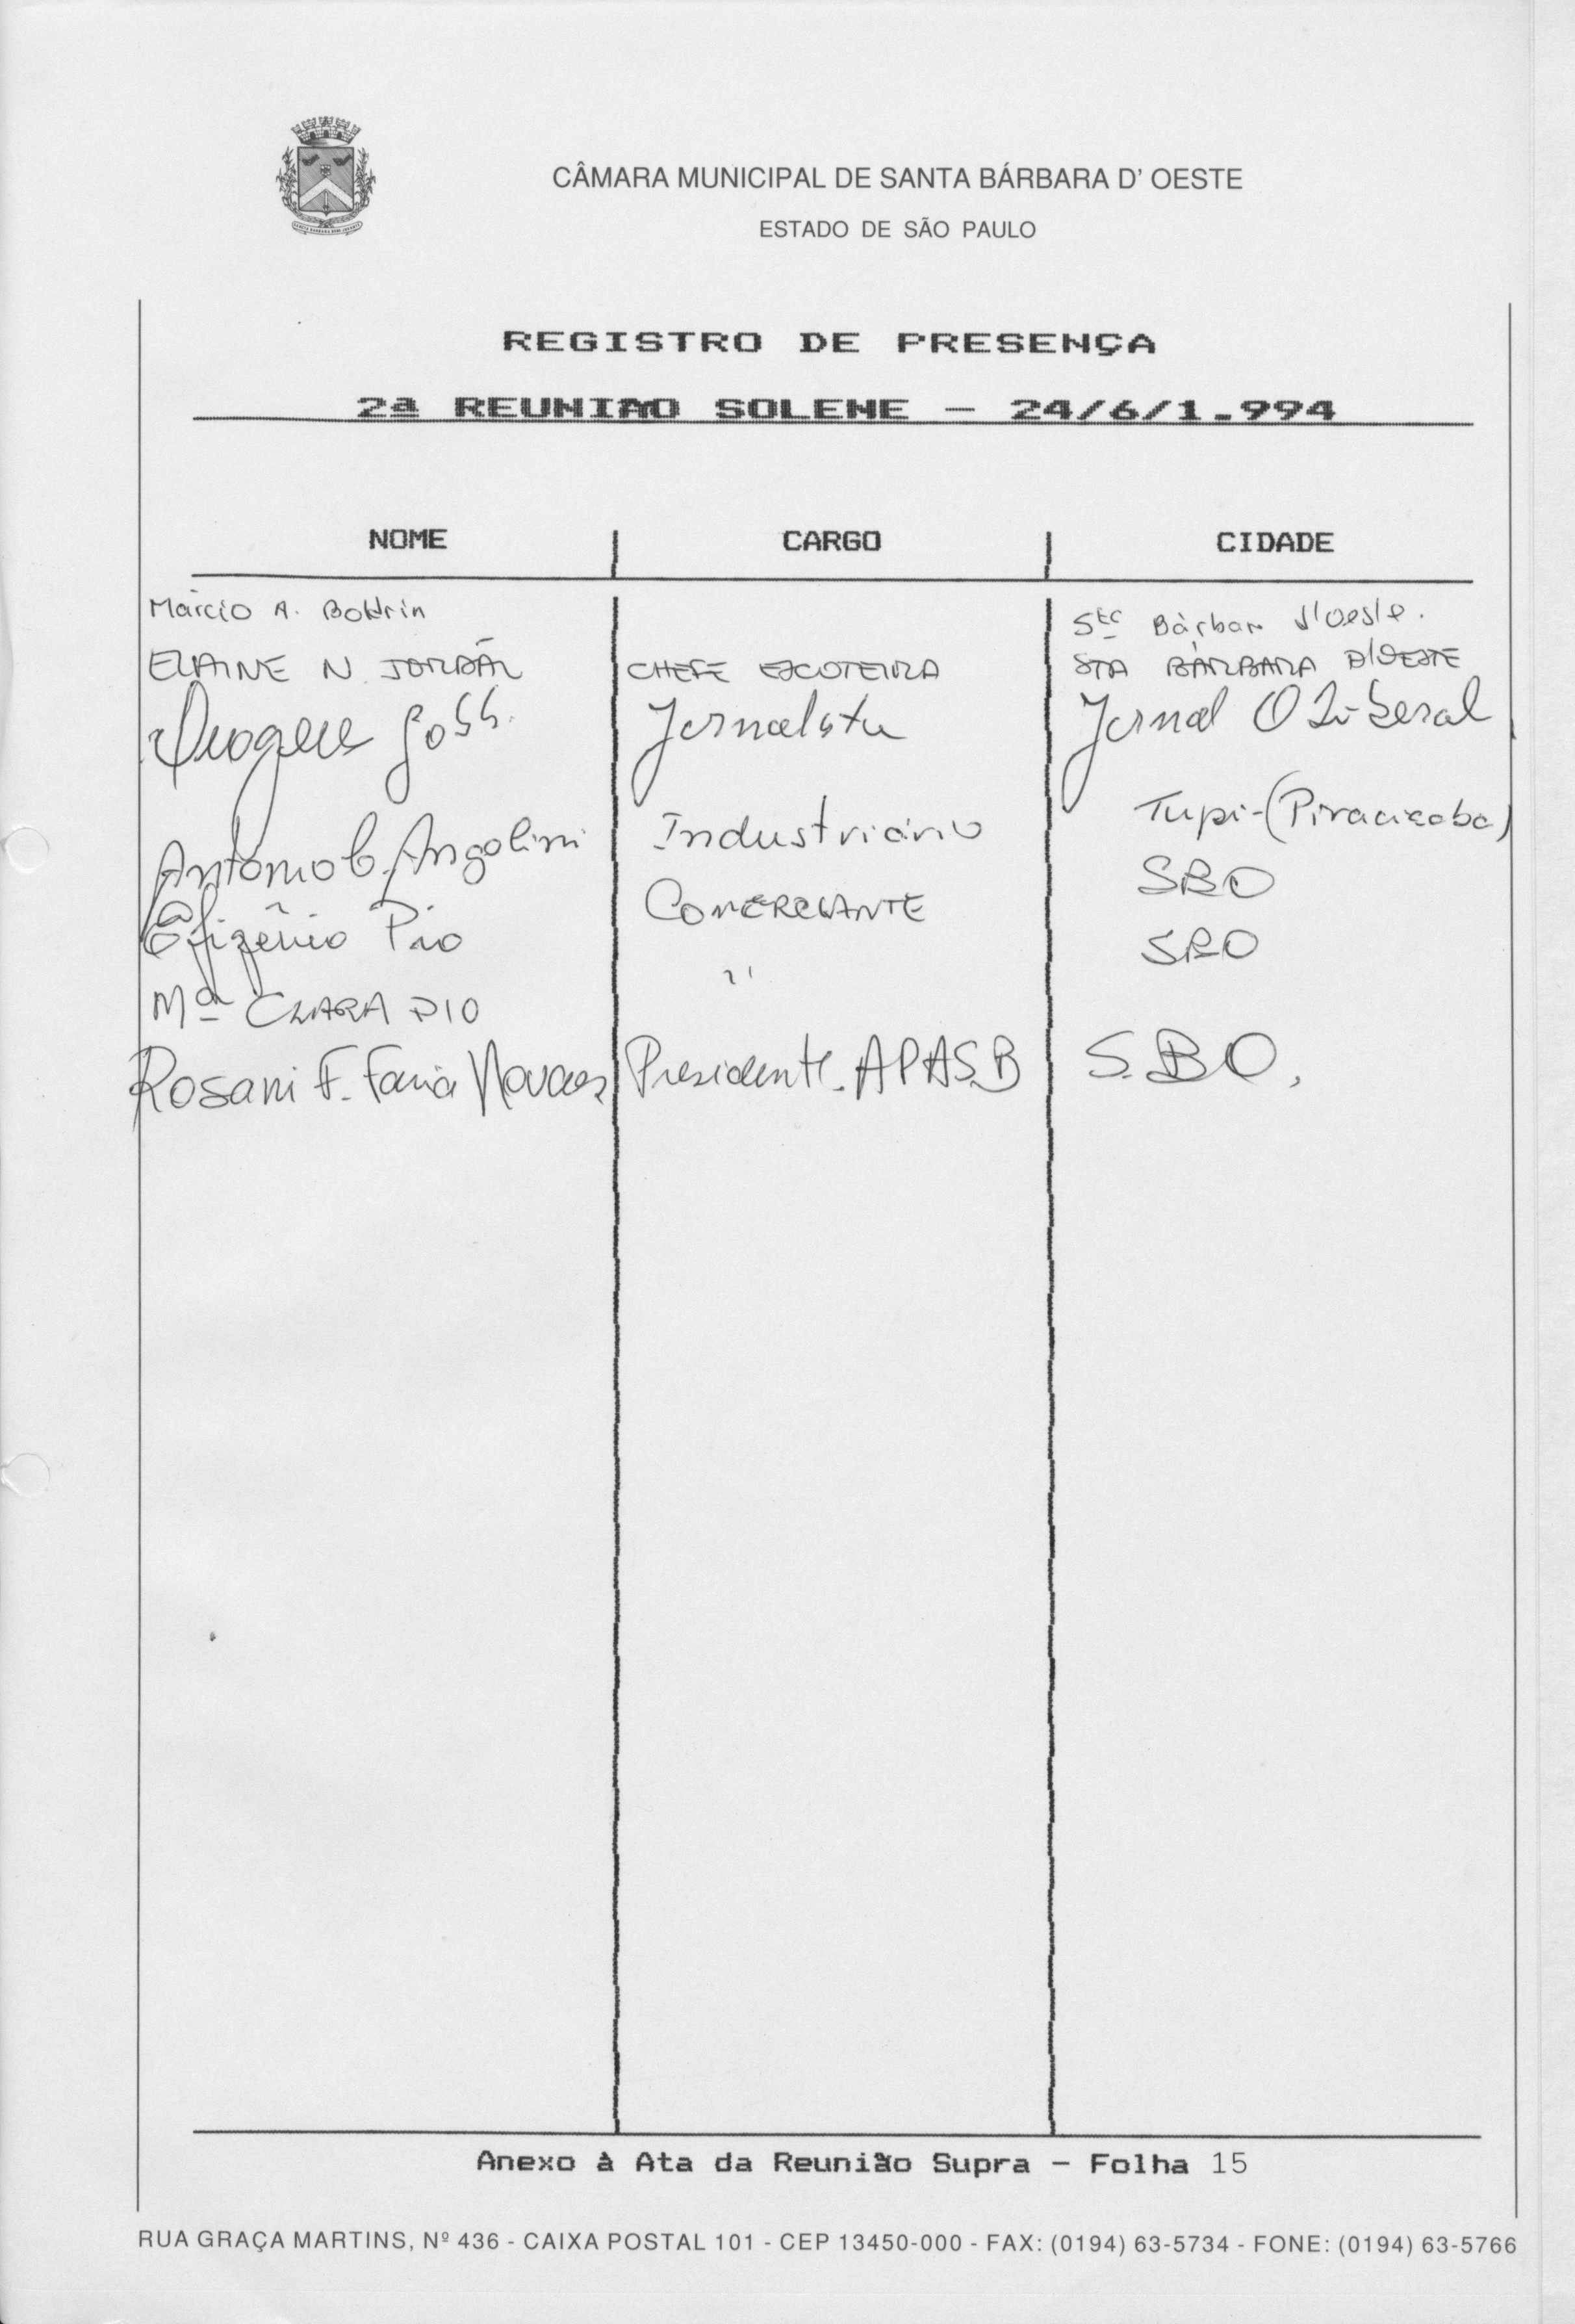 CÂMARA MUNICIPAL DE SANTA BÁRBARA D' OESTE
ESTADO DE SÃO PAULO
REGISTRO DE PRESENÇA
2ª REUNIÃO SOLENE - 24/6/1.994
NOME CARGO CIDADE
Márcio A. Boldrin Sta Bárbara d'Oeste.
ELAINE N. JORDÃO CHEFE ESCOTEIRA STA BÁRBARA D'OESTE
Jornalista Jornal O Liberal
Antonio C. Angolini Industriário Tupi-(Piracicaba)
Efigênio Pio COMERCIANTE SBO
Mª CLARA PIO " SBO
Rosani F. Faria Novaes Presidente APASB S.BO.
Anexo à Ata da Reunião Supra - Folha 15
RUA GRAÇA MARTINS, Nº 436 - CAIXA POSTAL 101 - CEP 13450-000 - FAX: (0194) 63-5734 - FONE: (0194) 63-5766